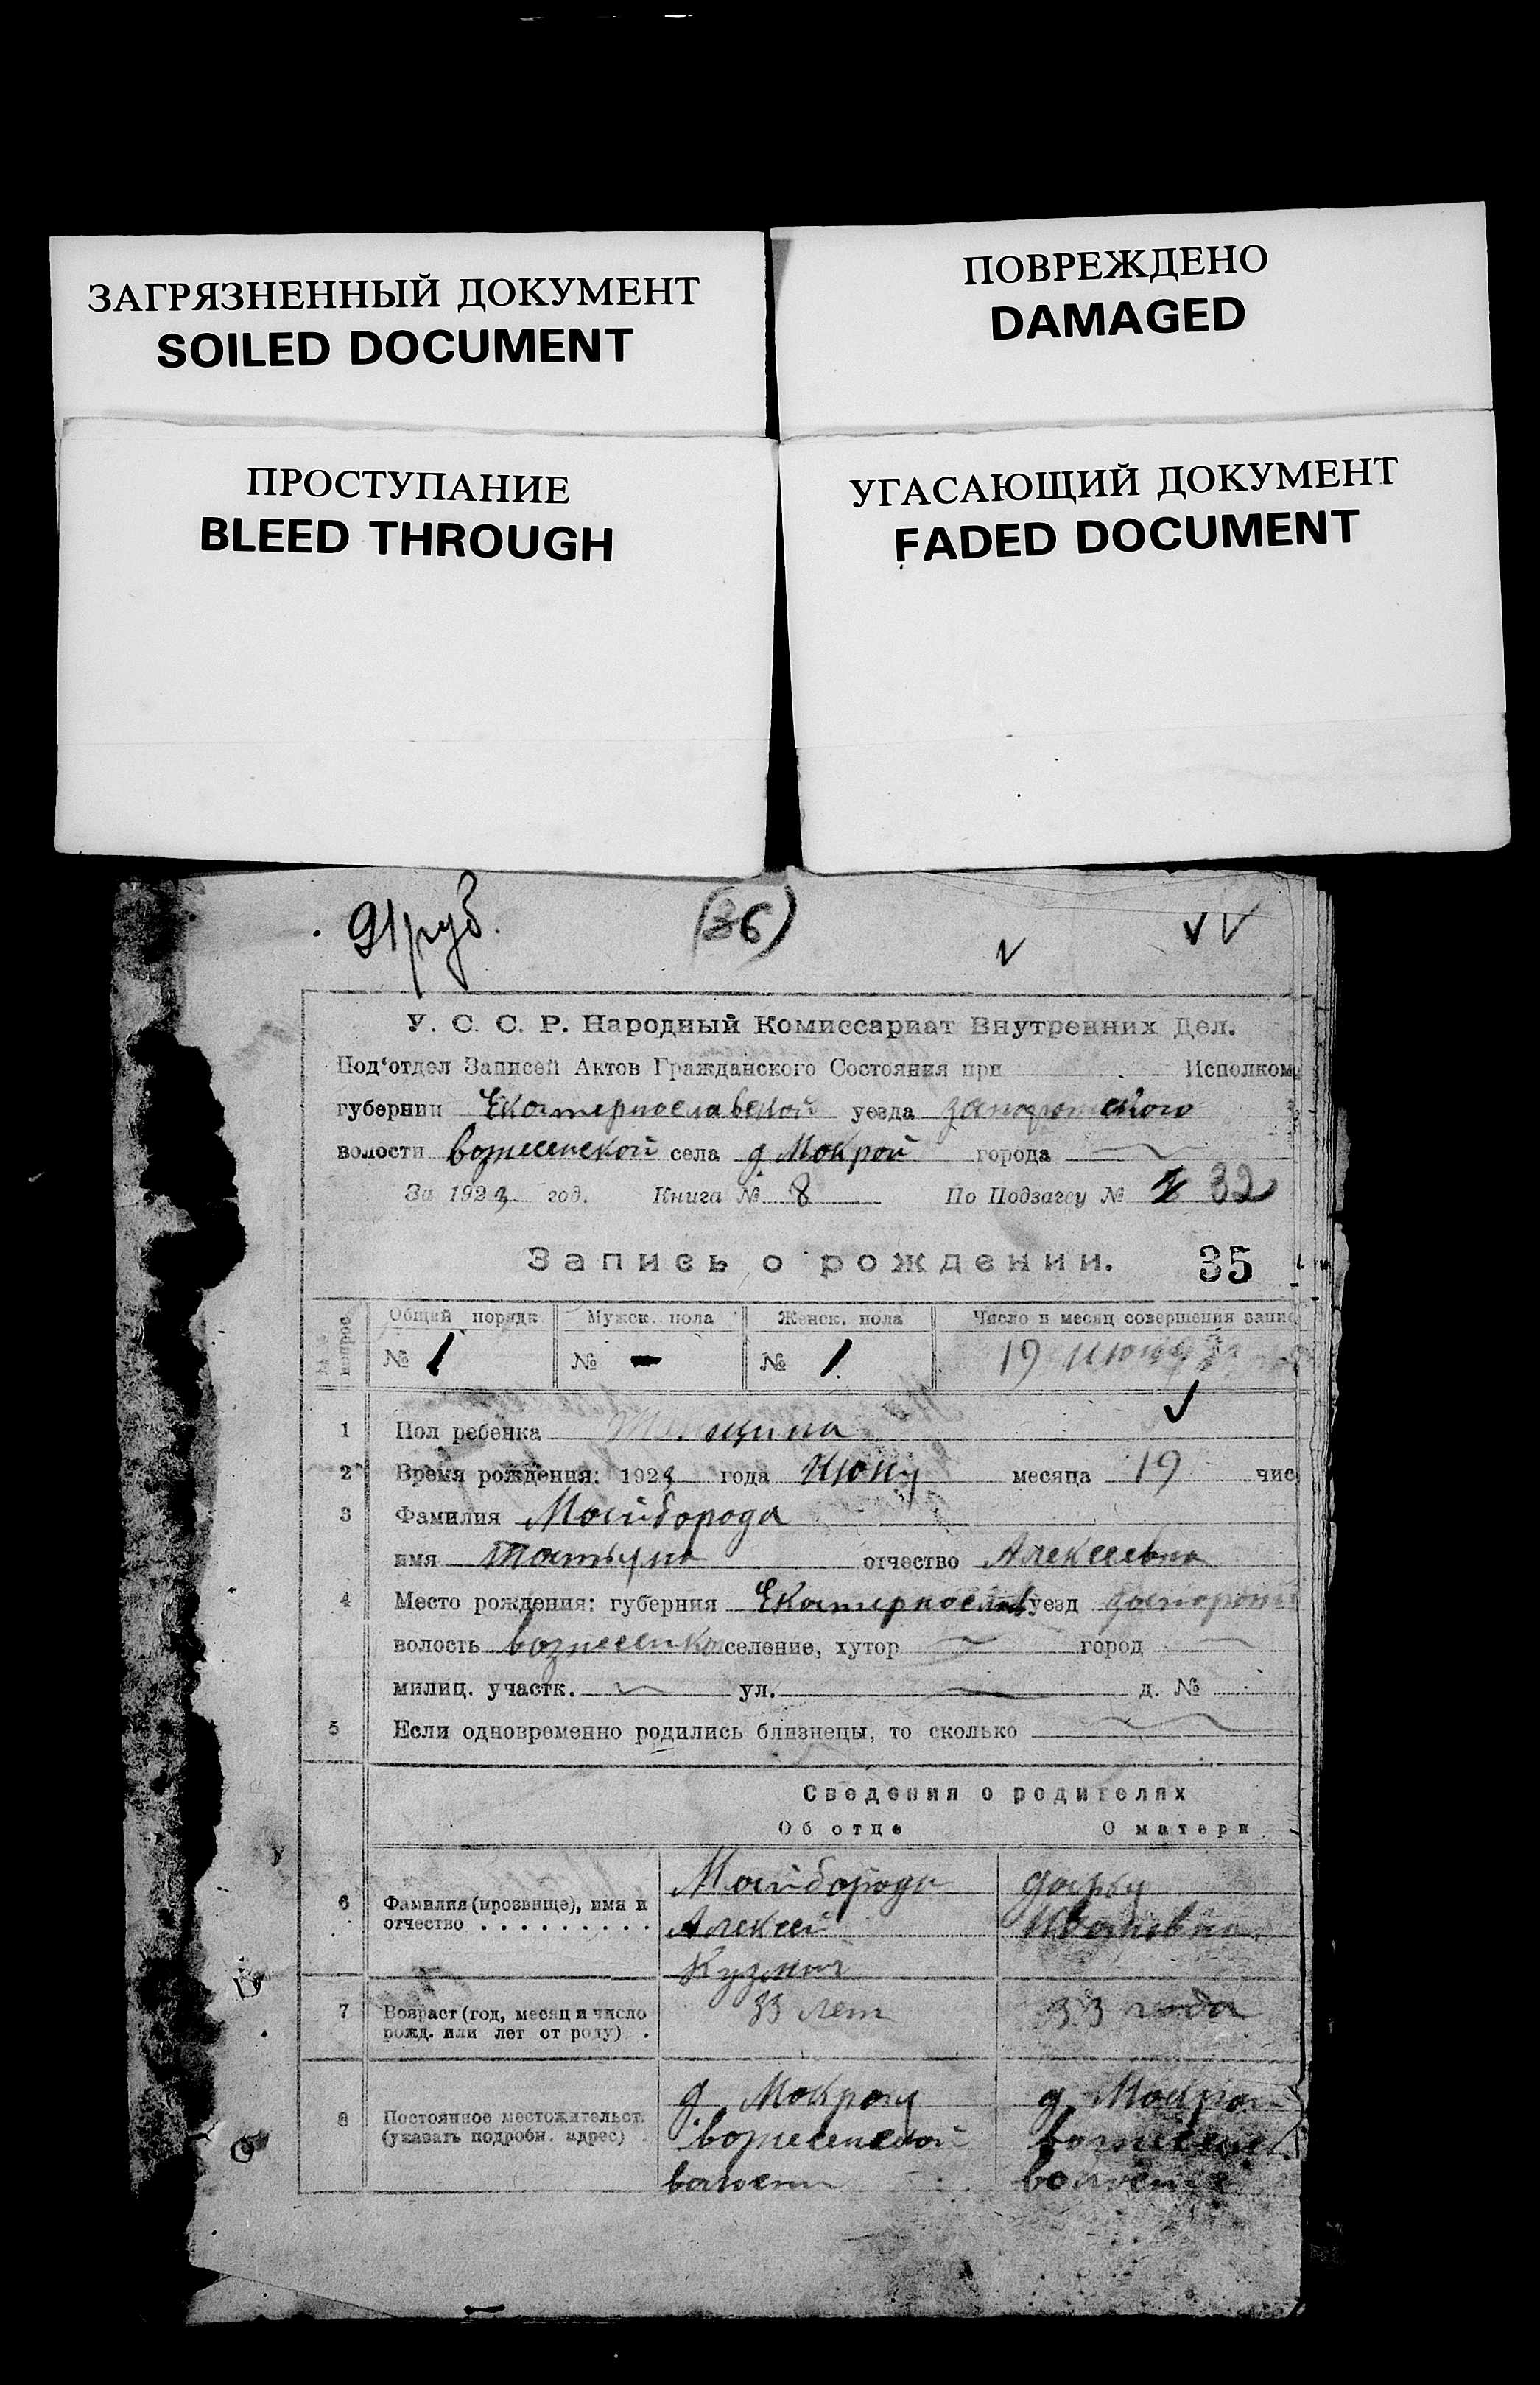 ЗАГРЯЗНЕННЫЙ ДОКУМЕНТ
SOILED DOCUMENT
ПОВРЕЖДЕНО
DAMAGED
ПРОСТУПАНИЕ
BLEED THROUGH
УГАСАЮЩИЙ ДОКУМЕНТ
FADED DOCUMENT
91 руб. (36)
У. С. С. Р. Народный Комиссариат Внутренних Дел.
Под‘отдел Записей Актов Гражданского Состояния при Исполком
губернии Екатеринославской уезда
волости вознесенской села д Мокрой города
За 1923 год. Книга № 8 По Подзагсу № 32
Запись о рождении. 35
Общий порядк. Мужск. пола Женск. пола Число и месяц совершения запис
№ 1 № – № 1 19
1 Пол ребенка
2 Время рождения: 1923 года Июня месяца 19 чис
3 Фамилия Майборода
имя Татьяна отчество Алексеевна
4 Место рождения: губерния Екатеринослав уезд
волость селение, хутор город
милиц. участк. ул. д. №
5 Если одновременно родились близнецы, то сколько
Сведения о родителях
Об отце О матери
6 Фамилия (прозвище), имя и отчество Майборода Дарья
Алексей Ивановна
Кузмич
7 Возраст (год, месяц и число рожд. или лет от роду) 33 лет 33 года
8 Постоянное местожительст. (указать подробн. адрес) д Мокрой д Мокрой
вознесенской
волости волости